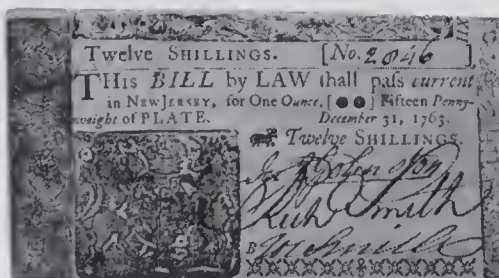 Twelve SHILLINGS. [No. 2846]
THis BILL by LAW ſhall paſs current
in NEW JERSEY, for One Ounce, [●●] Fifteen Penny-
weight of PLATE. December 31, 1763.
Twelve SHILLINGS.
Johnston
Rich Smith
B